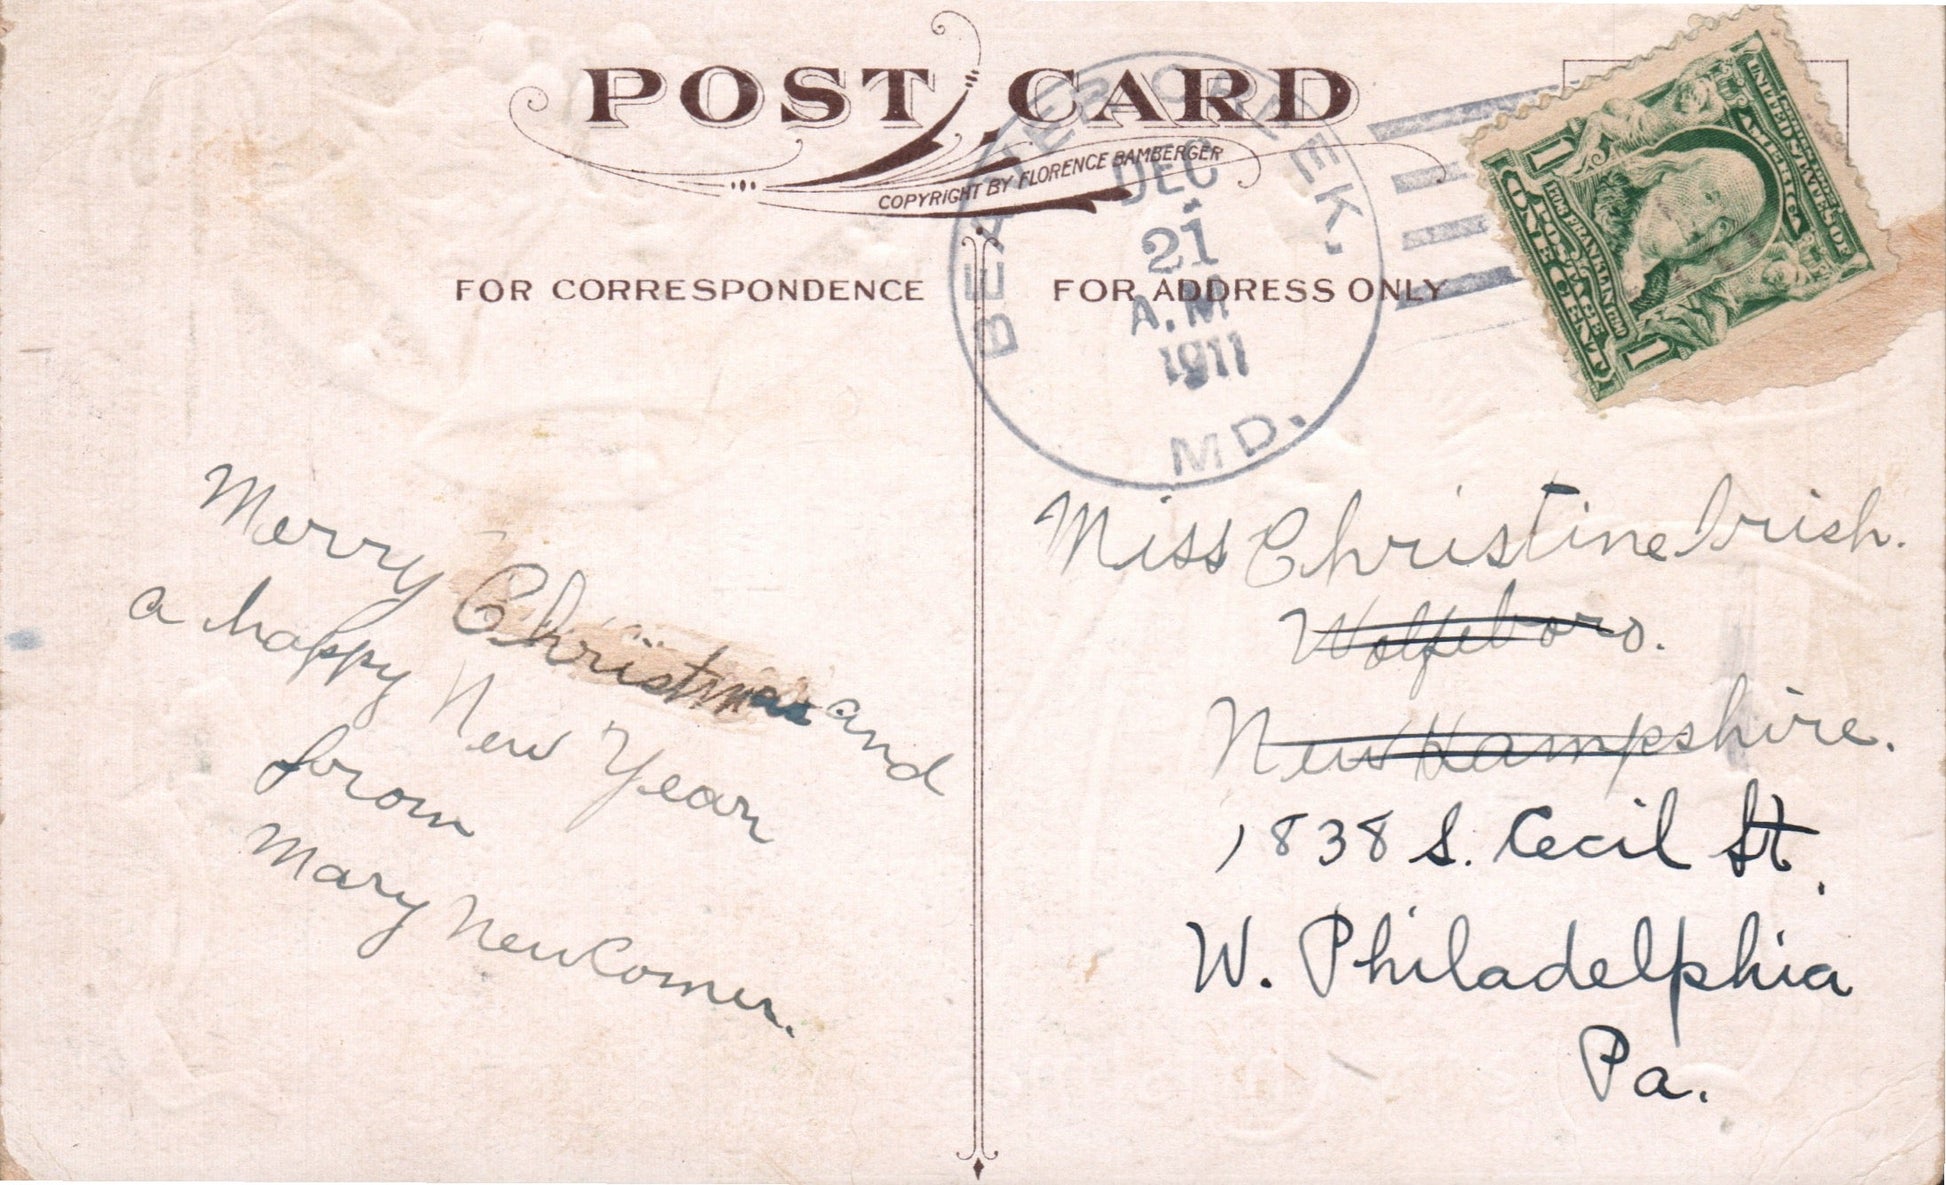 POST CARD
COPYRIGHT BY FLORENCE BAMBERGER
FOR CORRESPONDENCE
FOR ADDRESS ONLY
BEAVER CREEK.
DEC
21
A.M
1911
MD.
UNITED STATES OF
AMERICA
FRANKLIN
POSTAGE
ONE CENT
1
1
Merry Christmas and
a happy New Year
from
Mary Newcomer.
Miss Christine Irish.
Wolfeboro.
New Hampshire.
1838 S. Cecil St.
W. Philadelphia
Pa.